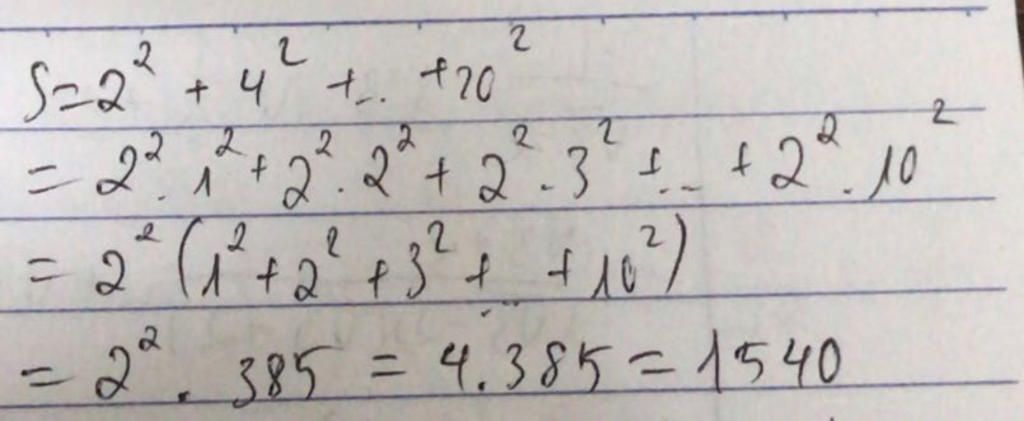 S = 2² + 4² + ... + 20²
= 2² . 1² + 2² . 2² + 2² . 3² + ... + 2² . 10²
= 2² (1² + 2² + 3² + ... + 10²)
= 2² . 385 = 4.385 = 1540